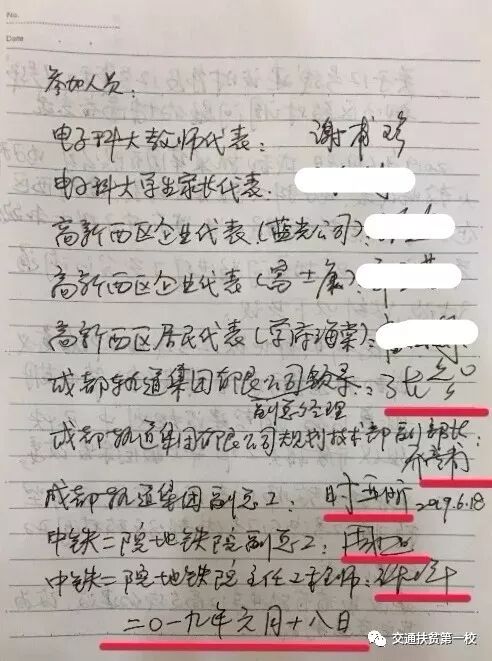 No.
Date
参加人员:
电子科大教师代表:
电子科大学生家长代表:
高新西区企业代表(蓝光公司):
高新西区企业代表(富士康):
高新西区居民代表(学府海棠):
成都轨道集团有限公司
副总经理
成都轨道集团有限公司规划技术部副部长:
成都轨道集团副总工:
中铁二院地铁院副总工:
中铁二院地铁院主任工程师:
二〇一九年六月十八日
交通扶贫第一校